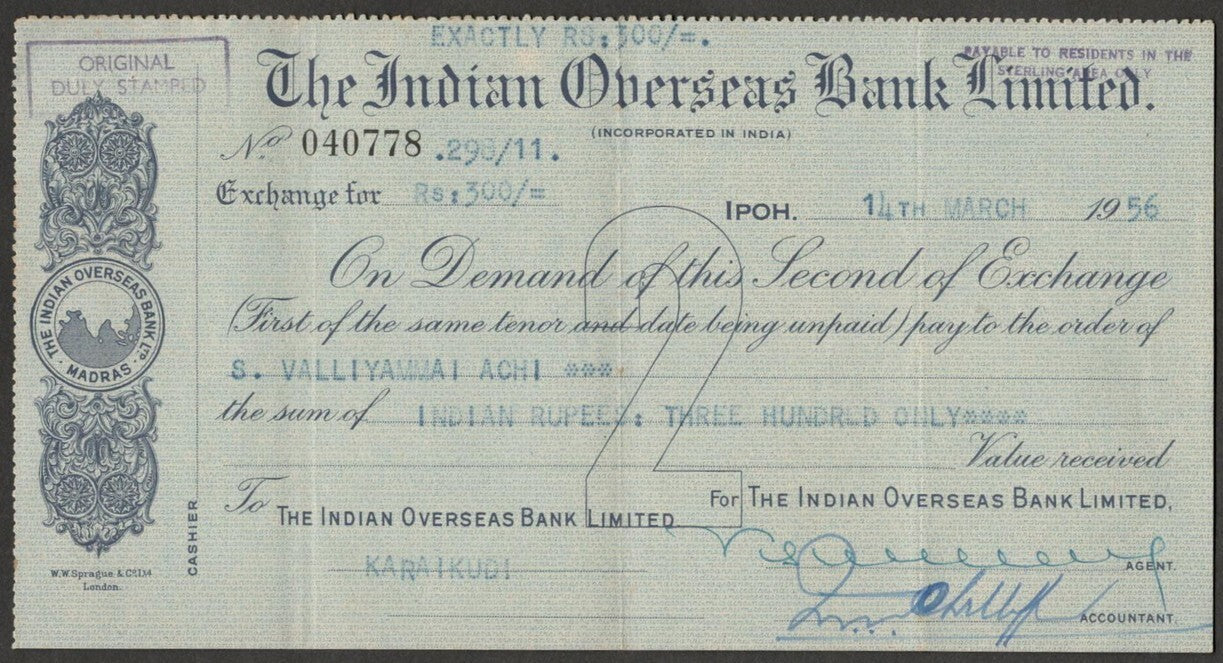 EXACTLY RS:300/=.
ORIGINAL
DULY STAMPED
PAYABLE TO RESIDENTS IN THE
STERLING AREA ONLY
The Indian Overseas Bank Limited.
(INCORPORATED IN INDIA)
No 040778 .298/11.
Exchange for Rs:300/=
IPOH. 14TH MARCH 1956
On Demand of this Second of Exchange
(First of the same tenor and date being unpaid) pay to the order of
S. VALLIYAMMAI ACHI ***
the sum of INDIAN RUPEES: THREE HUNDRED ONLY****
Value received
2
To THE INDIAN OVERSEAS BANK LIMITED
For THE INDIAN OVERSEAS BANK LIMITED,
KARAIKUDI
AGENT.
ACCOUNTANT.
CASHIER
THE INDIAN OVERSEAS BANK LTD.
· MADRAS ·
W.W. Sprague & Co. Ltd
London.